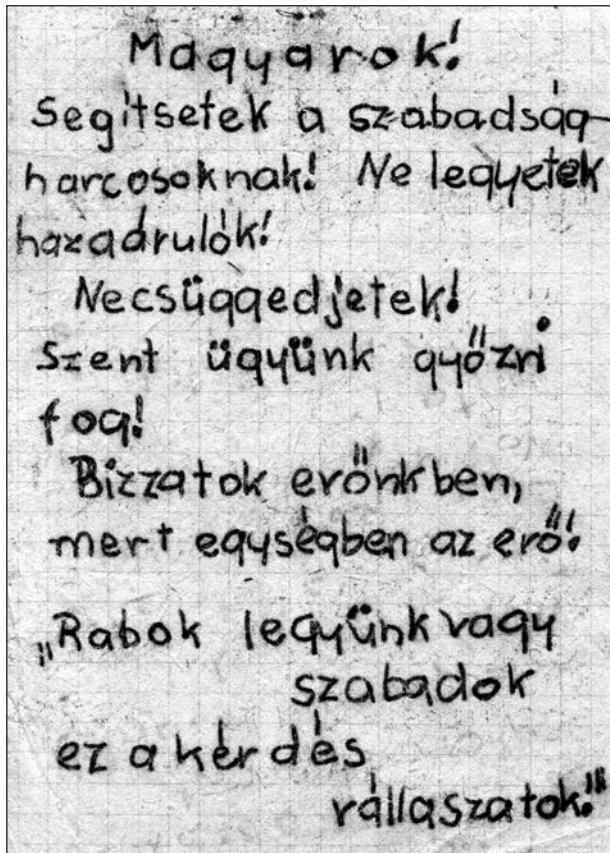 Magyarok!
Segítsetek a szabadság-
harcosoknak! Ne legyetek
hazadrulók!
Necsüggedjetek!
Szent ügyünk győzni
fog!
Bízzatok erőnkben,
mert egységben az erő!
„Rabok legyünk vagy
szabadok
ez a kérdés
rállaszatok!"